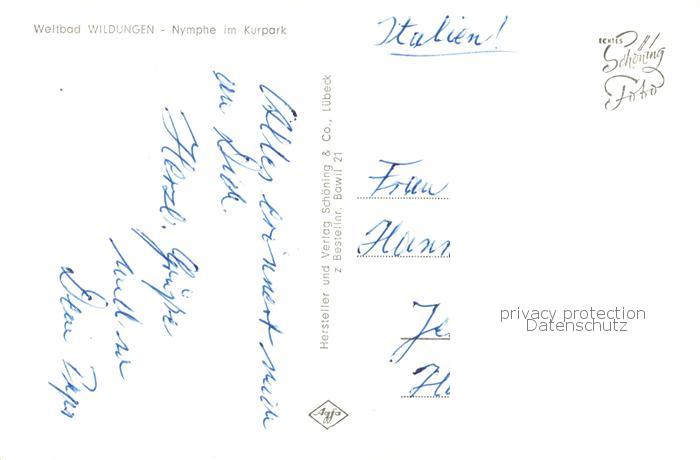 Weltbad WILDUNGEN - Nymphe im Kurpark
Italien!
ECHTES
Schöning
Foto
Alles erinnert mich
an Dich.
Herzl. Grüße
und
Dein
Hersteller und Verlag Schöning & Co., Lübeck
z Bestellnr. Bawil 21
Frau
Hann
Je
privacy protection
Datenschutz
Agfa